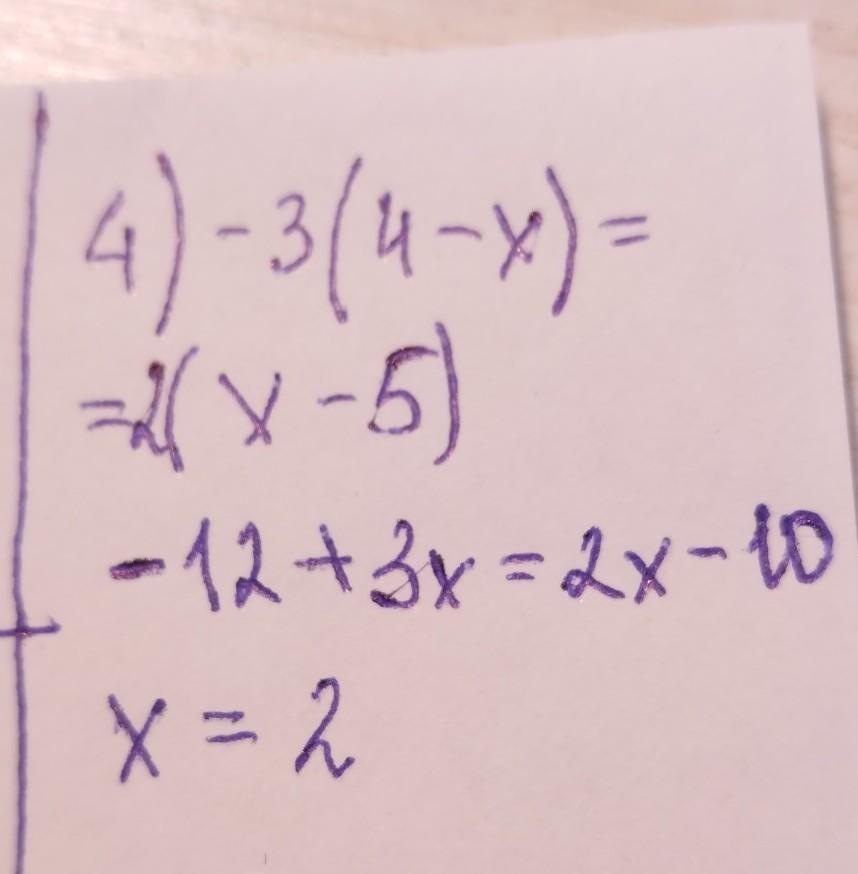 4) -3(4-x)=
=2(x-5)
-12+3x=2x-10
x=2